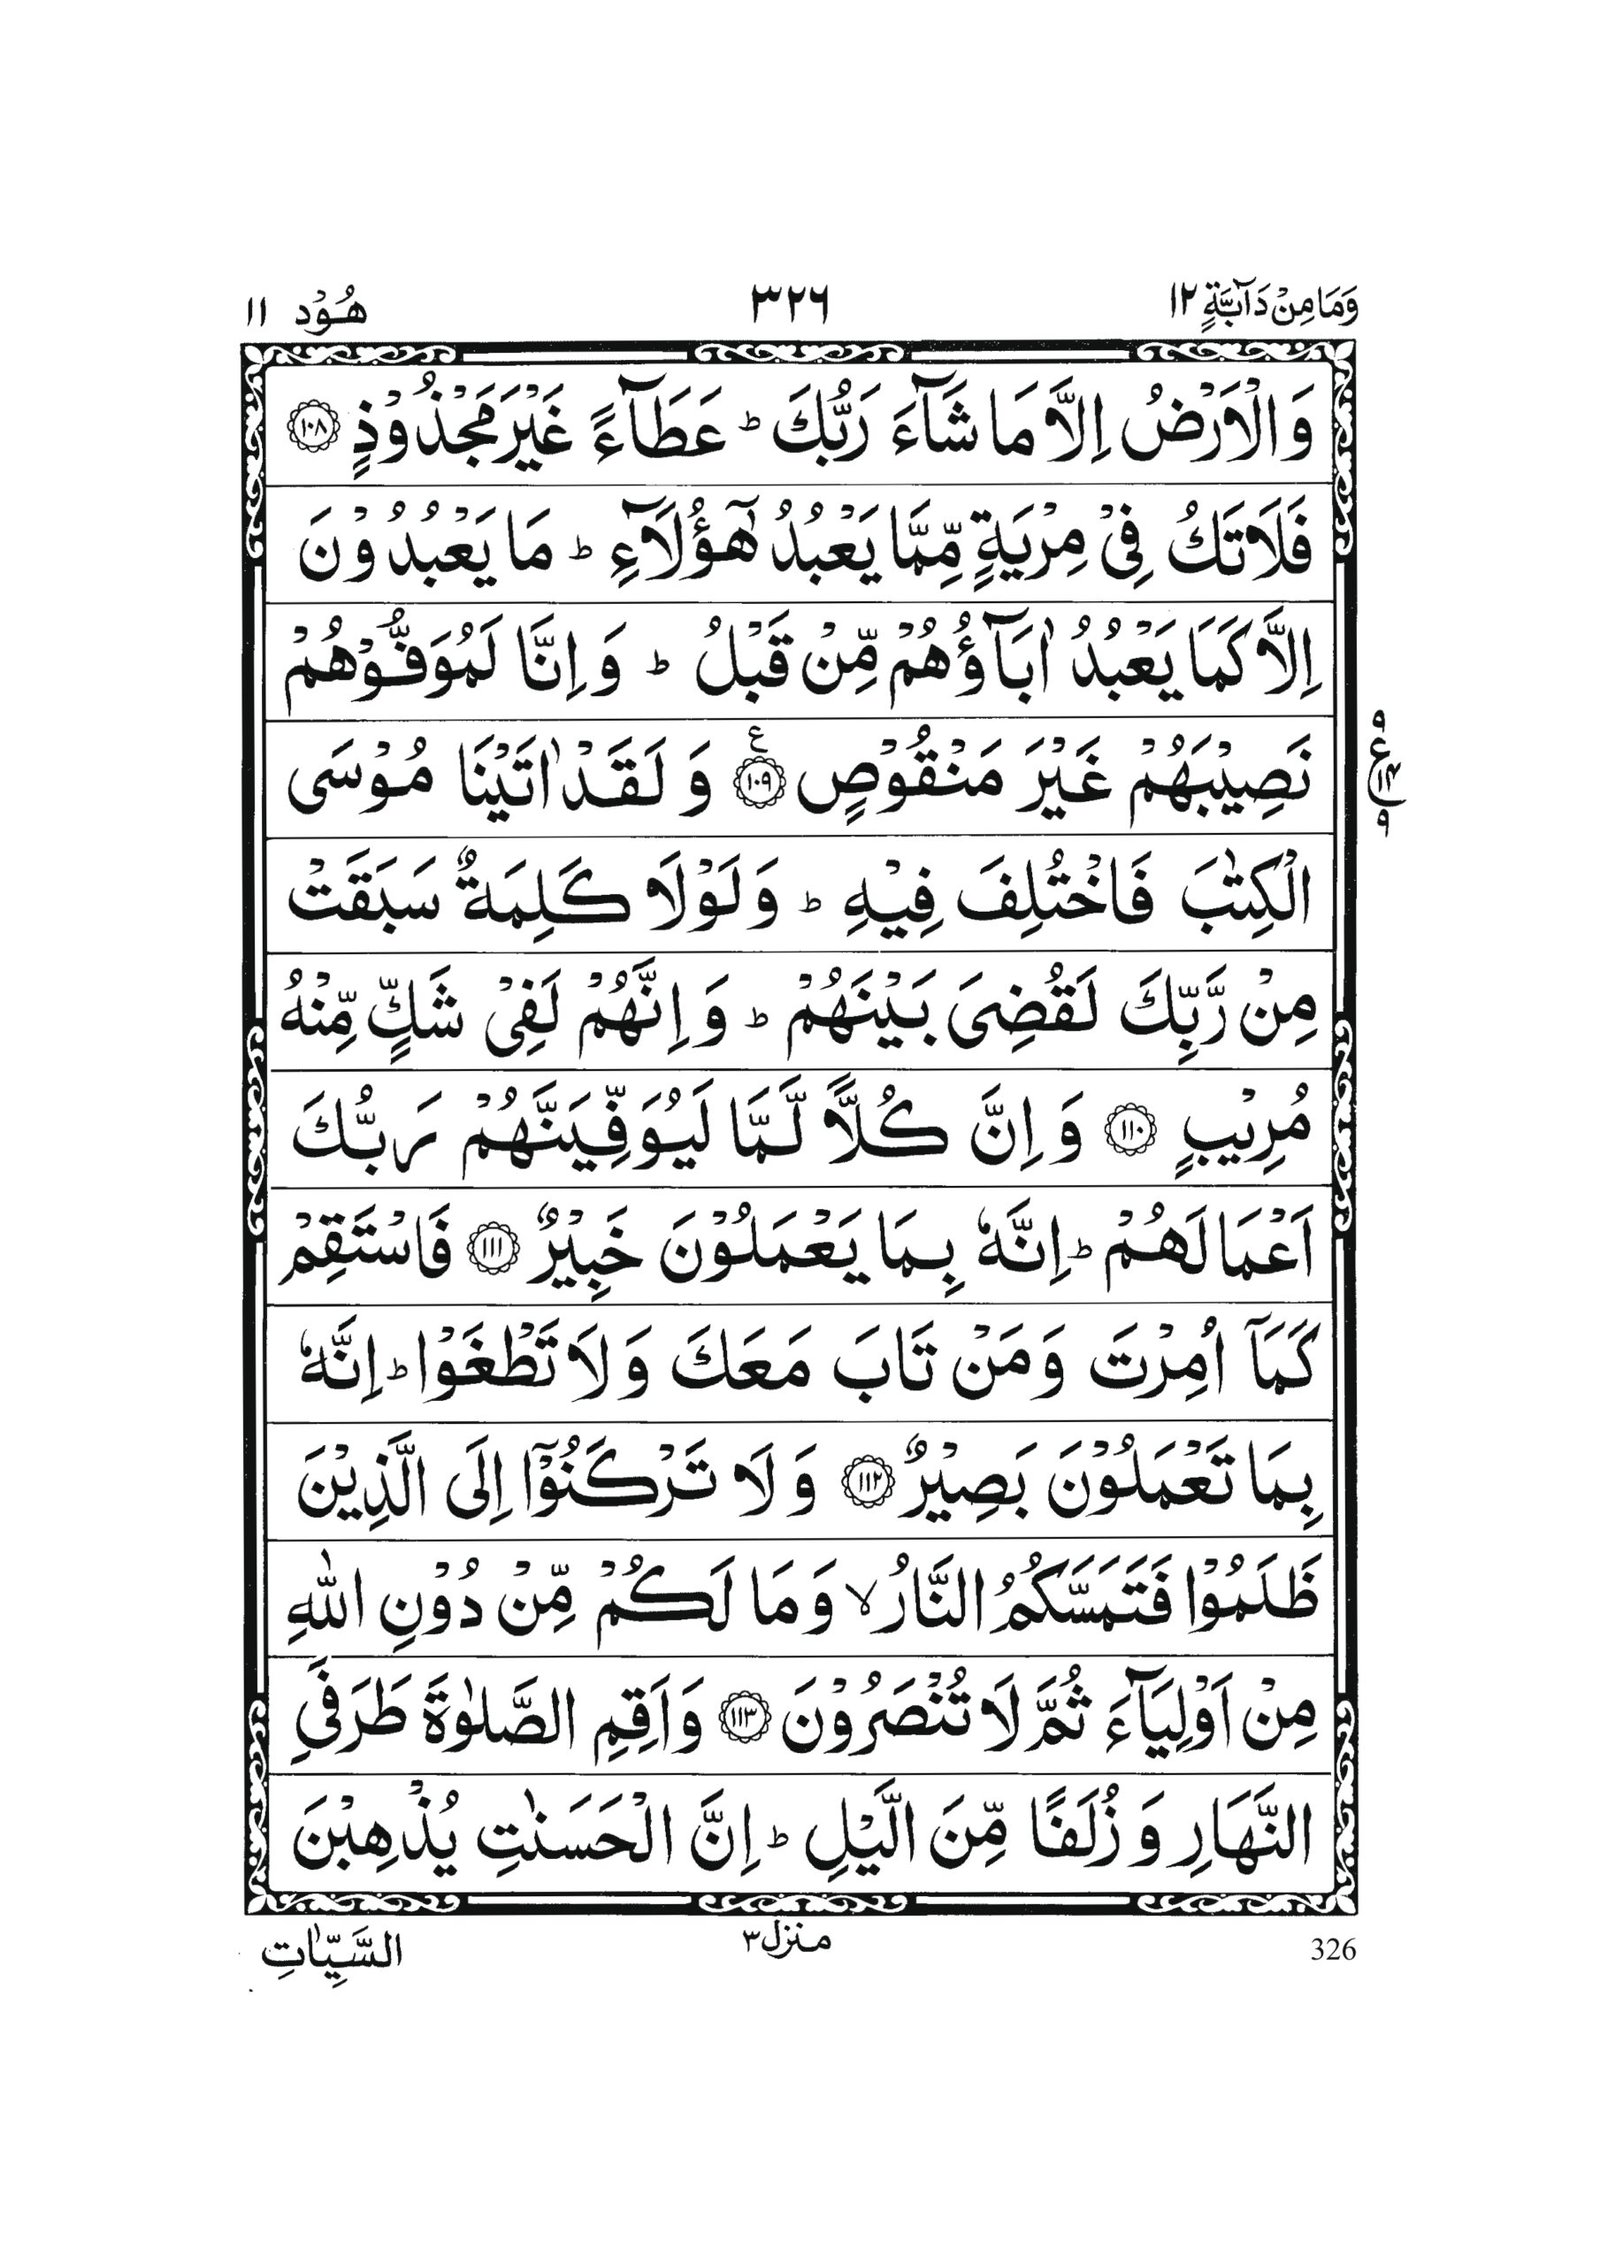 وَمَا مِنْ دَآبَّةٍ ١٢ ٣٢٦ هُوْد ١١
وَالْاَرْضُ اِلَّا مَا شَآءَ رَبُّكَ ؕ عَطَآءً غَيْرَ مَجْذُوْذٍ ۝١٠٨
فَلَا تَكُ فِيْ مِرْيَةٍ مِّمَّا يَعْبُدُ هٰٓؤُلَآءِ ؕ مَا يَعْبُدُوْنَ
اِلَّا كَمَا يَعْبُدُ اٰبَآؤُهُمْ مِّنْ قَبْلُ ؕ وَاِنَّا لَمُوَفُّوْهُمْ
نَصِيْبَهُمْ غَيْرَ مَنْقُوْصٍ ۝١٠٩ ع وَلَقَدْ اٰتَيْنَا مُوْسَى
الْكِتٰبَ فَاخْتُلِفَ فِيْهِ ؕ وَلَوْلَا كَلِمَةٌ سَبَقَتْ
مِنْ رَّبِّكَ لَقُضِيَ بَيْنَهُمْ ؕ وَاِنَّهُمْ لَفِيْ شَكٍّ مِّنْهُ
مُرِيْبٍ ۝١١٠ وَاِنَّ كُلًّا لَّمَّا لَيُوَفِّيَنَّهُمْ رَبُّكَ
اَعْمَالَهُمْ ؕ اِنَّهٗ بِمَا يَعْمَلُوْنَ خَبِيْرٌ ۝١١١ فَاسْتَقِمْ
كَمَآ اُمِرْتَ وَمَنْ تَابَ مَعَكَ وَلَا تَطْغَوْا ؕ اِنَّهٗ
بِمَا تَعْمَلُوْنَ بَصِيْرٌ ۝١١٢ وَلَا تَرْكَنُوْٓا اِلَى الَّذِيْنَ
ظَلَمُوْا فَتَمَسَّكُمُ النَّارُ ۙ وَمَا لَكُمْ مِّنْ دُوْنِ اللّٰهِ
مِنْ اَوْلِيَآءَ ثُمَّ لَا تُنْصَرُوْنَ ۝١١٣ وَاَقِمِ الصَّلٰوةَ طَرَفَيِ
النَّهَارِ وَزُلَفًا مِّنَ الَّيْلِ ؕ اِنَّ الْحَسَنٰتِ يُذْهِبْنَ
326 منزل ٣ السَّيِّاٰتِ